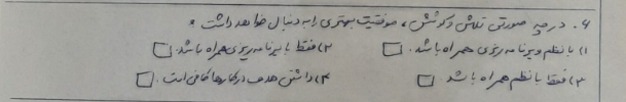 ۶. در چه صورتی تلاش و کوشش، موفقیت بهتری را به دنبال خواهد داشت؟
۱) با نظم و برنامه ریزی همراه باشد. □ ۲) فقط با برنامه ریزی همراه باشد. □
۳) فقط با نظم همراه باشد □ ۴) داشتن هدف در کارها کافی است. □